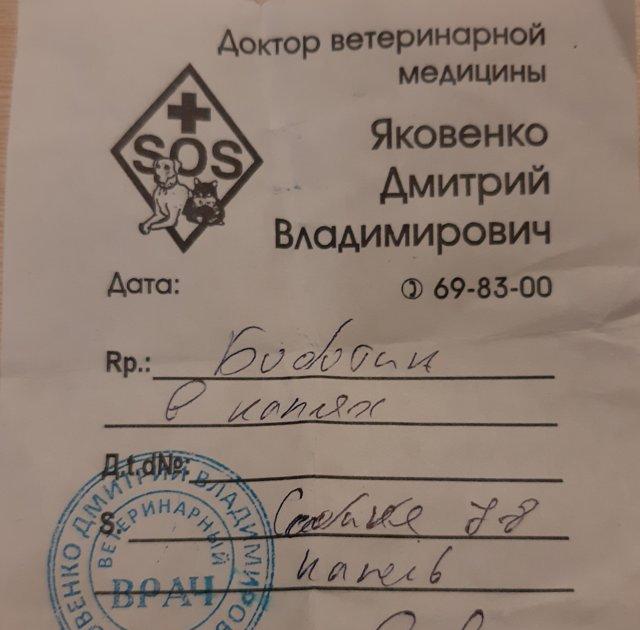 Доктор ветеринарной
медицины
SOS
Яковенко
Дмитрий
Владимирович
Дата:
69-83-00
Rp.: Боботик
в каплях
Д.t.d№:
S. Собаке 7-8
капель
ОВЕНКО ДМИТРИЙ ВЛАДИМИРОВ
ВЕТЕРИНАРНЫЙ
ВРАЧ